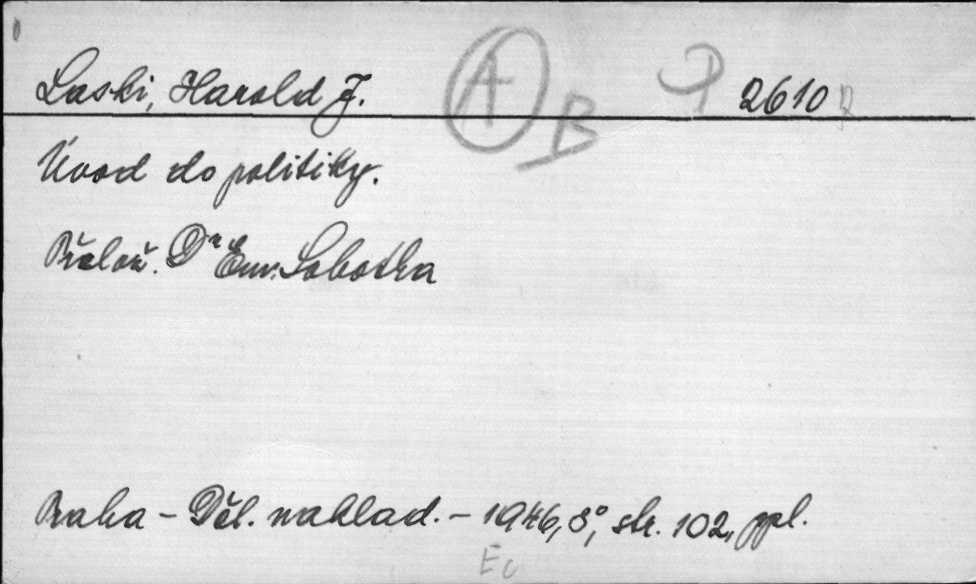 Laski, Harold J. A B 2610
Úvod do politiky.
Přelož. Dr Em. Sobotka
Praha - Děl. naklad. - 1946, 8°, str. 102, ppl.